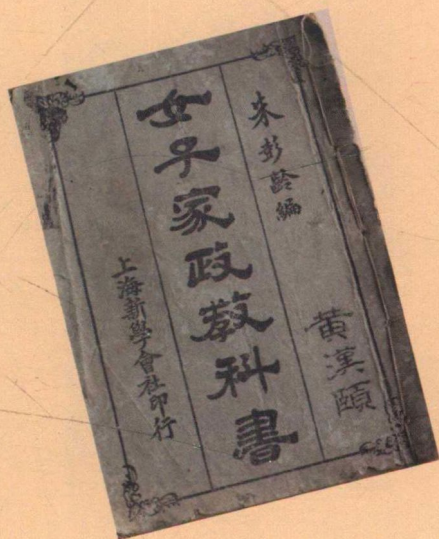 朱彭齡編
黃漢頤
女子家政教科書
上海新學會社印行